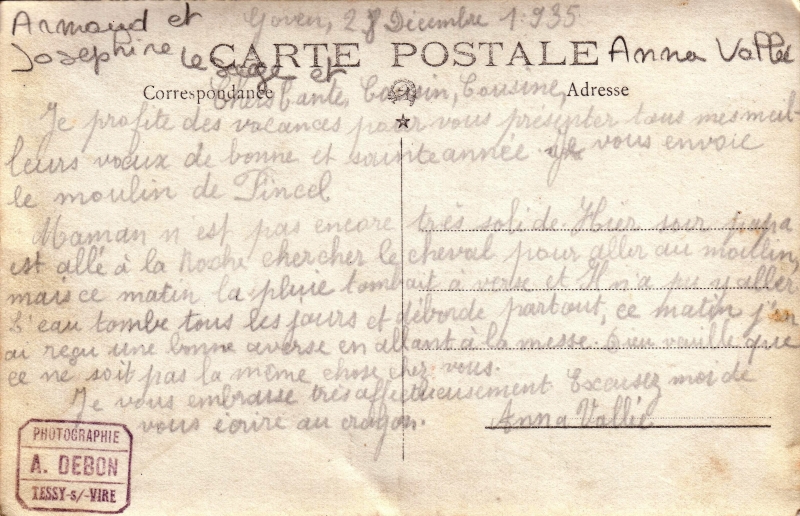 Armand et
Josephine Lesage et
Anna Vallée
Goven, 28 Décembre 1935
CARTE POSTALE
Correspondance
Adresse
Chers Tante, Cousin, Cousine,
Je profite des vacances pour vous présenter tous mes meil-
leurs vœux de bonne et sainte année. Je vous envoie
le moulin de Pincel
Maman n est pas encore très solide. Hier soir papa
est allé à la Roche chercher le cheval pour aller au moulin,
mais ce matin la pluie tombait à verse et Il n'a pu y aller.
L'eau tombe tous les jours et déborde partout, ce matin j'en
ai reçu une bonne averse en allant à la messe. Dieu vaille que
ce ne soit pas la même chose chez vous.
Je vous embrasse très affectueusement. Excusez moi de
vous écrire au crayon.
Anna Vallée
PHOTOGRAPHIE
A. DEBON
TESSY-s/-VIRE